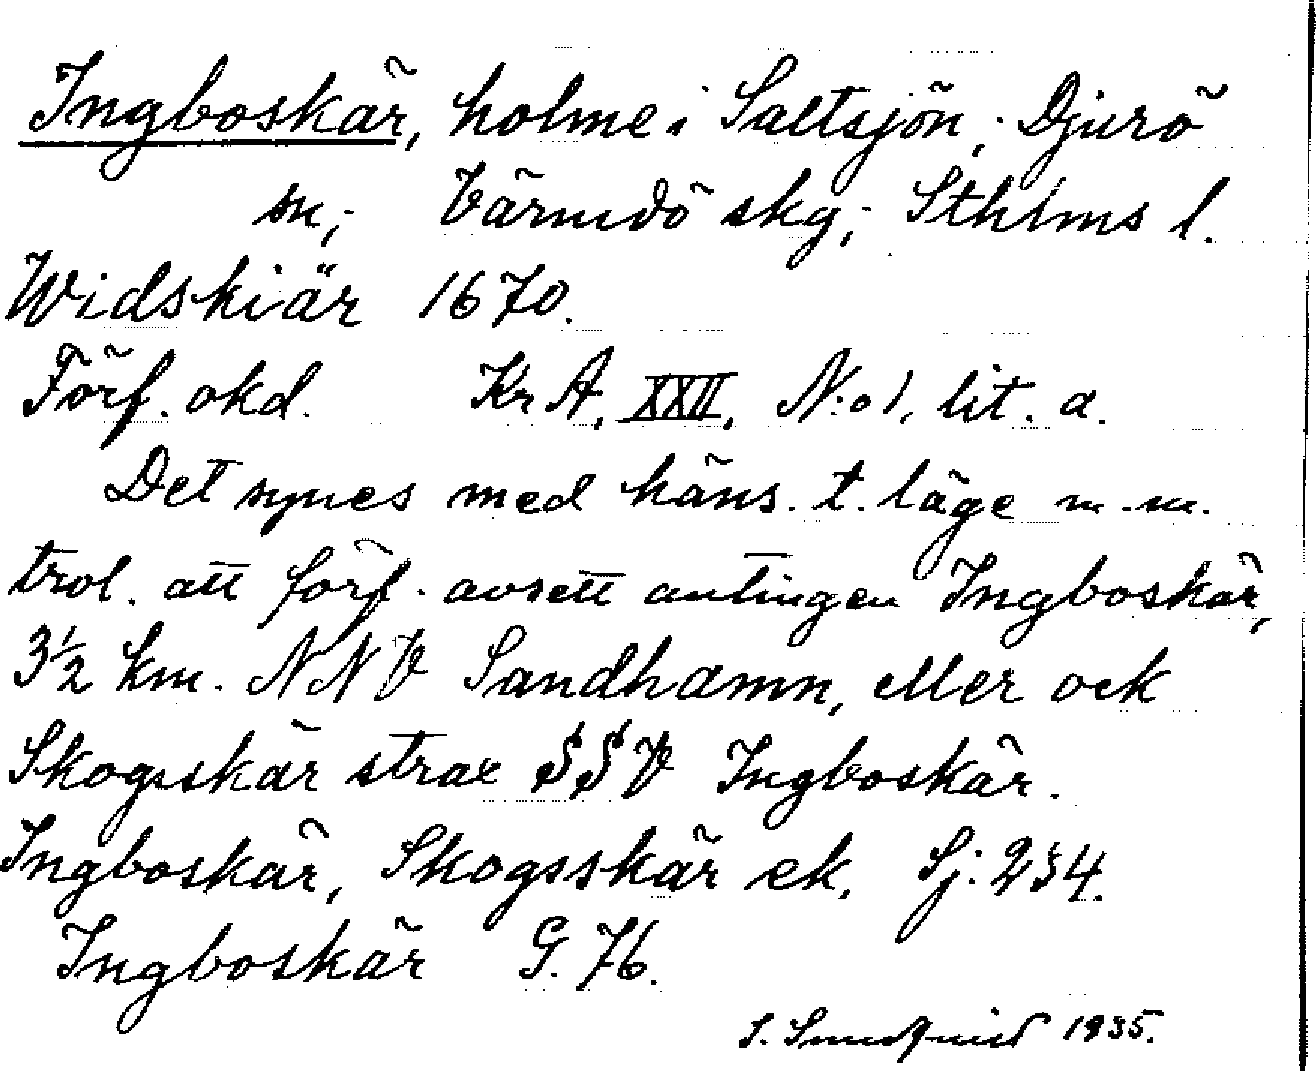 Ingboskär, holme i Saltsjön; Djurö
sn; Värmdö skg; Sthlms l.
Widskiär 1670.
Förf. okd. Kr A, XXII, N:o 1, lit. a.
Det synes med häns. t. läge m.m.
trol. att förf. avsett antingen Ingboskär,
3½ km. NNV Sandhamn, eller ock
Skogsskär strax SSV Ingboskär.
Ingboskär, Skogsskär ek. Sj. 234.
Ingboskär G. 76.
S. Sundquist 1935.